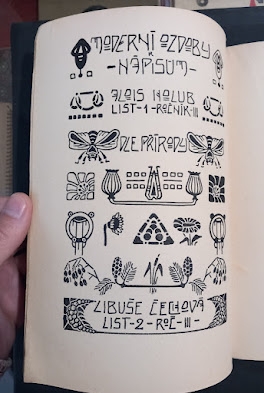 MODERNÍ OZDOBY
K
- NÁPISŮM -
ALOIS HOLUB
LIST - 1 - ROČNÍK - III
DLE PŘÍRODY
LIBUŠE ČECHOVÁ
LIST - 2 - ROČ - III -